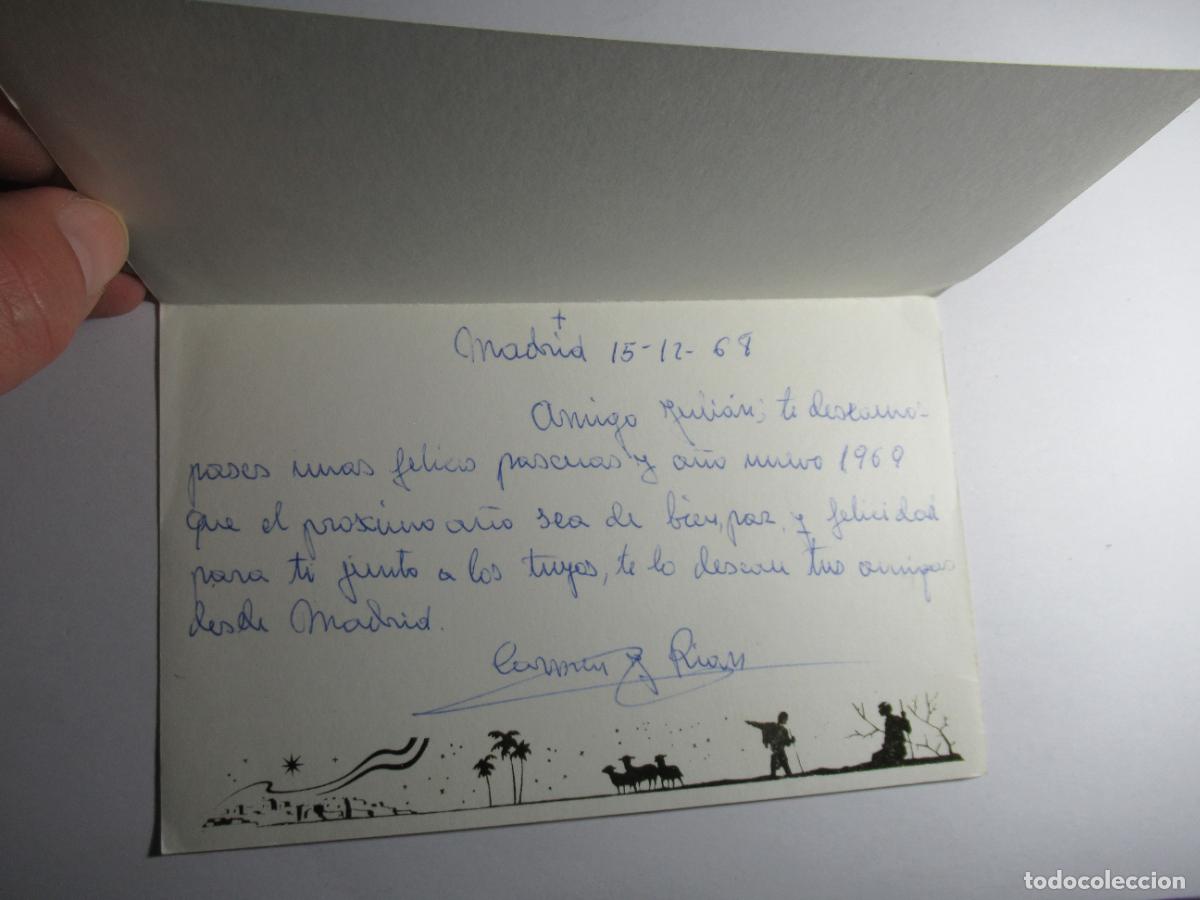 +
Madrid 15-12-68
Amigo Julián; te deseamos
pases unas felices pascuas y año nuevo 1969
que el proximo año sea de bien, paz, y felicidad
para ti junto a los tuyos, te lo desean tus amigas
desde Madrid.
Carmen y
todocoleccion